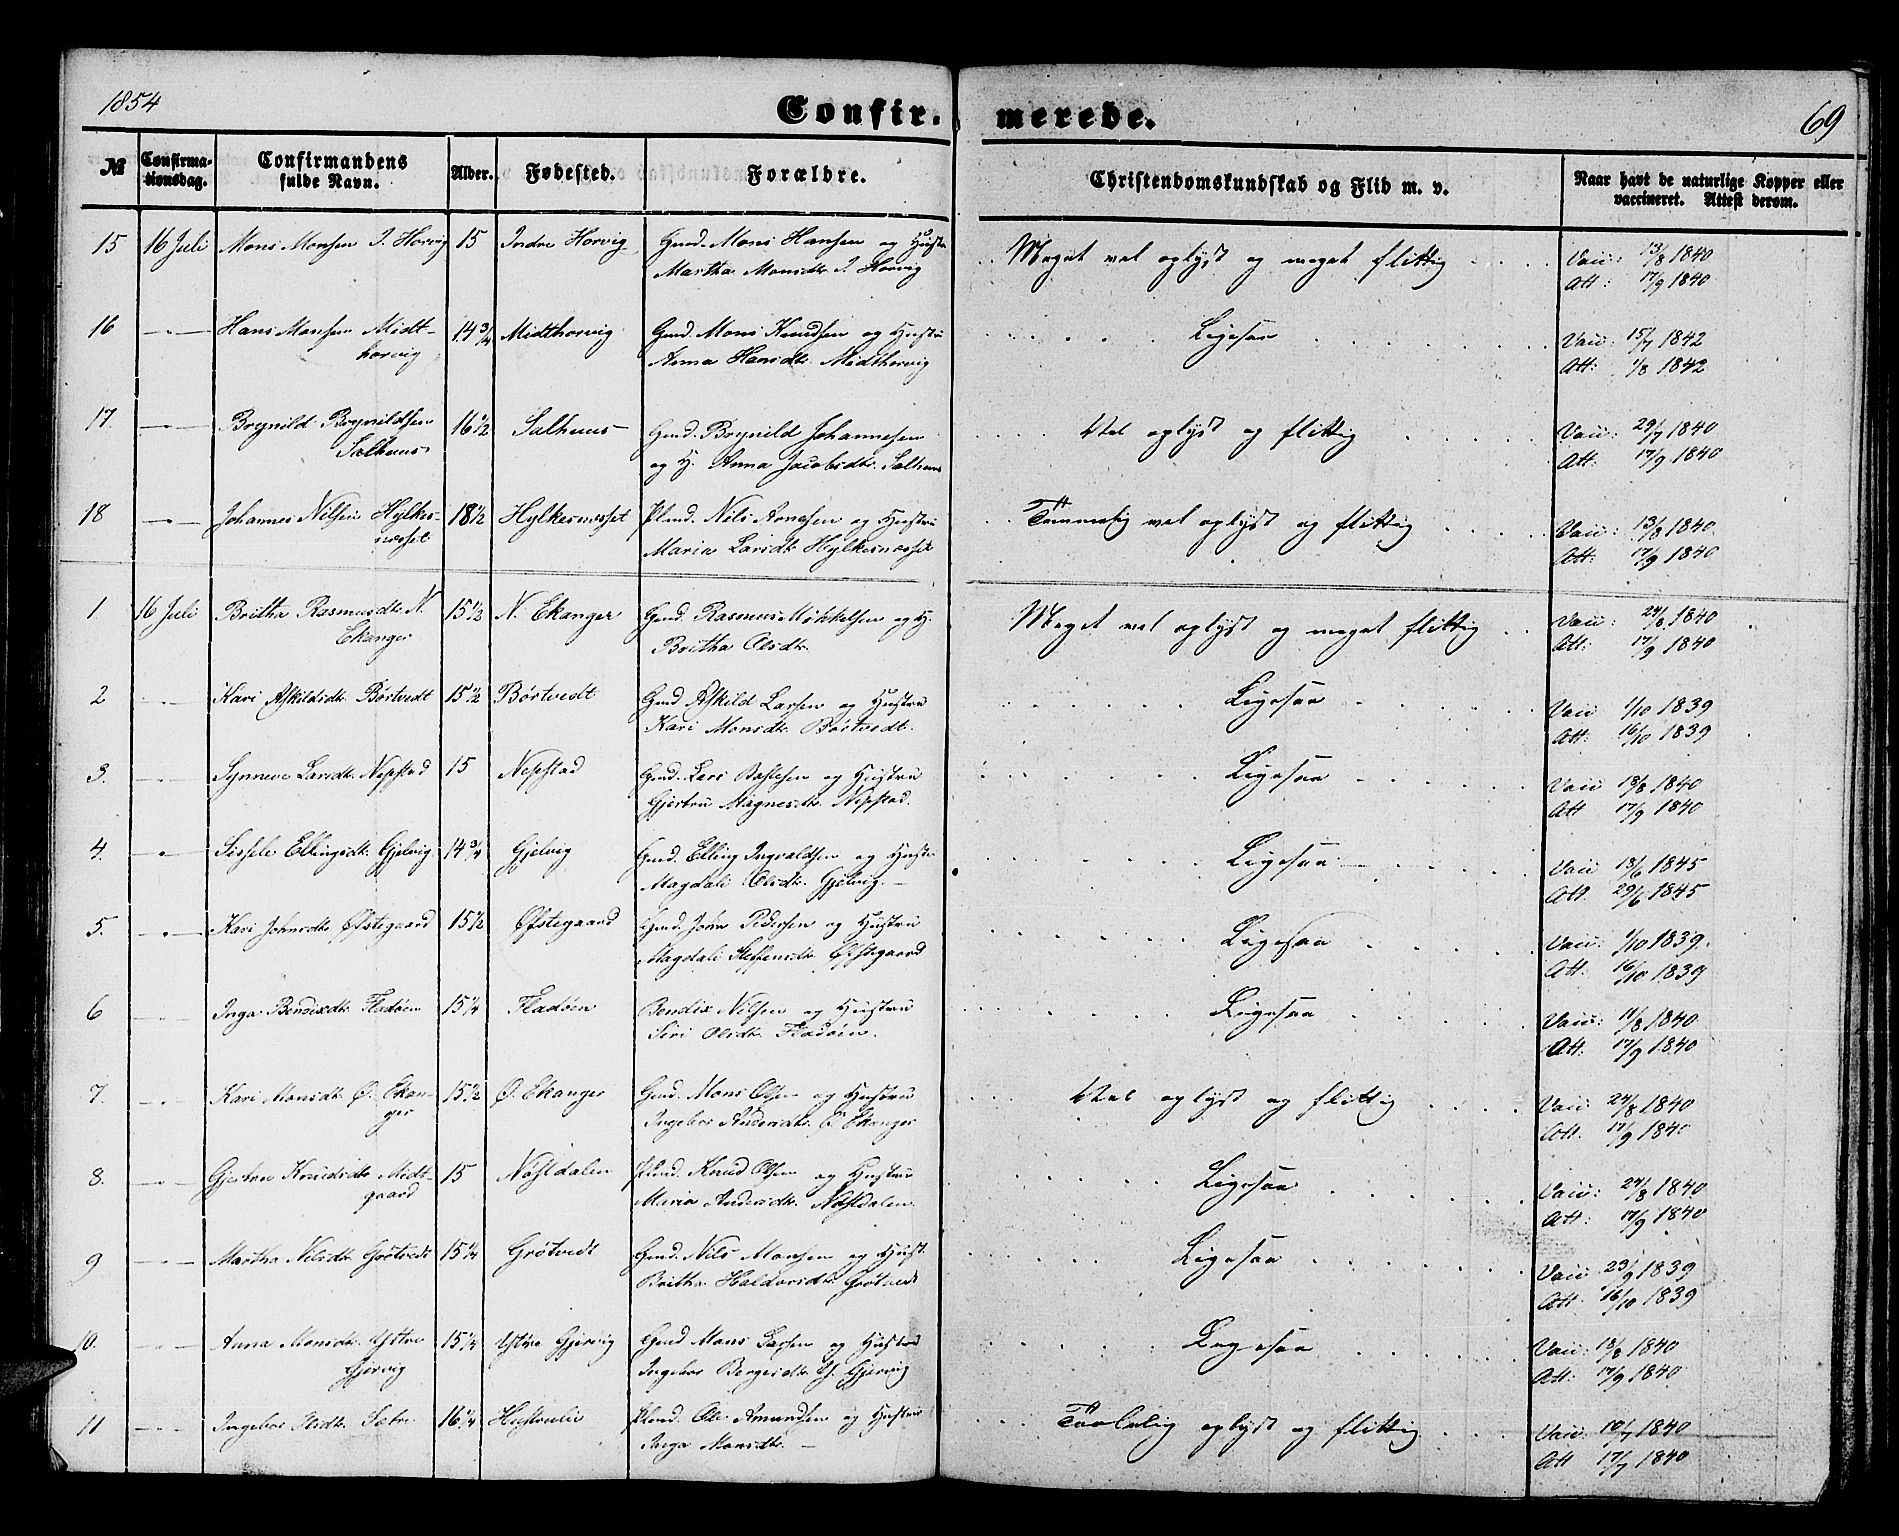 1854
Confir-
merede.
69
№
Confirma-
tionsdag.
Confirmandens
fulde Navn.
Alder.
Fødested.
Forældre.
Christendomskundskab og Flid m. v.
Naar havt de naturlige Kopper eller
vaccineret. Attest derom.
15 16 Juli Mons Monsen I. Horvig 15 Indre Horvig Gmd. Mons Hansen og Hustru Meget vel oplyst og meget flittig Vacc: 13/8 1840
Martha Monsdtr. I. Horvig Att: 17/9 1840
16 Hans Monsen Midt- 14 3/4 Midthorvig Gmd. Mons Knudsen og Hustru Ligesaa Vacc: 15/7 1842
horvig Anna Hansdtr. Midthorvig Att: 1/8 1842
17. Brynild Brynildsen 16 1/2 Salhuus Gmd. Brynild Johannesen Vel oplyst og flittig Vacc: 29/7 1840
Salhuus og H. Anna Jacobsdtr. Salhuus Att: 17/9 1840
18 Johannes Nilsen Hylkes- 18 1/2 Hylkesnesset Plmd. Nils Arnesen og Hustru Temmelig vel oplyst og flittig Vacc: 13/8 1840.
nesset Marie Larsdtr. Hylkesnesset Att: 17/9 1840
1. 16 Juli Britha Rasmusdtr. N. 15 1/2 N. Ekanger Gmd. Rasmus Mikkelsen og H. Meget vel oplyst og meget flittig Vacc: 24/8 1840
Ekanger Britha Olsdtr. Att: 17/9 1840
2 Kari Askildsdtr. Børtvedt 15 1/2 Børtvedt Gmd Askild Larsen og Hustru Ligesaa Vacc 1/10 1839
Kari Monsdtr. Børtvedt. Att: 16/10 1839
3. Synneve Larsdtr. Nepstad 15 Nepstad Gmd. Lars og Hustru Ligesaa Vacc 13/8 1840
Gjertru Magnesdtr. Nepstad. Att 17/9 1840
4. Sissele Ellingsdtr. Gjelvig 14 3/4 Gjelvig Gmd. Elling Ingvaldsen og Hustru Ligesaa Vacc 13/6 1845
Magdali Olsdtr. Gjelvig. Att. 29/6 1845
5. Kari Johnsdtr. Øfstegaard 15 1/2 Øfstegaard Gmd. John Pedersen og Hustru Ligesaa Vacc: 1/10 1839.
Magdali Steffensdtr. Øfstegaard Att: 16/10 1839
6 Inga Bendixdtr. Fladøen 15 1/4 Fladøen Bendix Nilsen og Hustru Ligesaa Vacc: 11/8 1840
Siri Olsdtr. Fladøen. Att. 17/9 1840
7. Kari Monsdtr. Ø. Ekan- 15 1/2 Ø. Ekanger Gmd. Mons Olsen og Hustru Vel oplyst og flittig Vacc: 24/8 1840
ger Ingebor Andersdtr. Ø Ekanger Att. 17/9 1840
8. Gjertru Knudsdtr. Midt- 15 Nøstdalen Plmd. Knud Olsen og Hustru Ligesaa Vacc: 24/8 1840
gaard Maria Andersdtr. Nøstdalen. Att: 17/9 1840
9 Martha Nilsdtr. Grøtvedt 15 1/4 Grøtvedt Gmd. Nils Monsen og Hust. Ligesaa Vacc 23/9 1839
Britha Haldorsdtr. Grøtvedt Att. 16/10 1839
10. Anna Monsdtr. Ystre 15 1/4 Ystre Gjervig Gmd Mons Larsen og Hustru Ligesaa Vacc: 13/8 1840
Gjervig Ingebor Bergesdtr. Y. Gjervig Att: 17/9 1840
11 Ingebor Olsdtr. Sætre 16 1/4 Plmd. Ole Amundsen og Hustru Taalelig oplyst og flittig Vacc: 10/7 1840
Inga Monsdtr. Att 17/7 1840